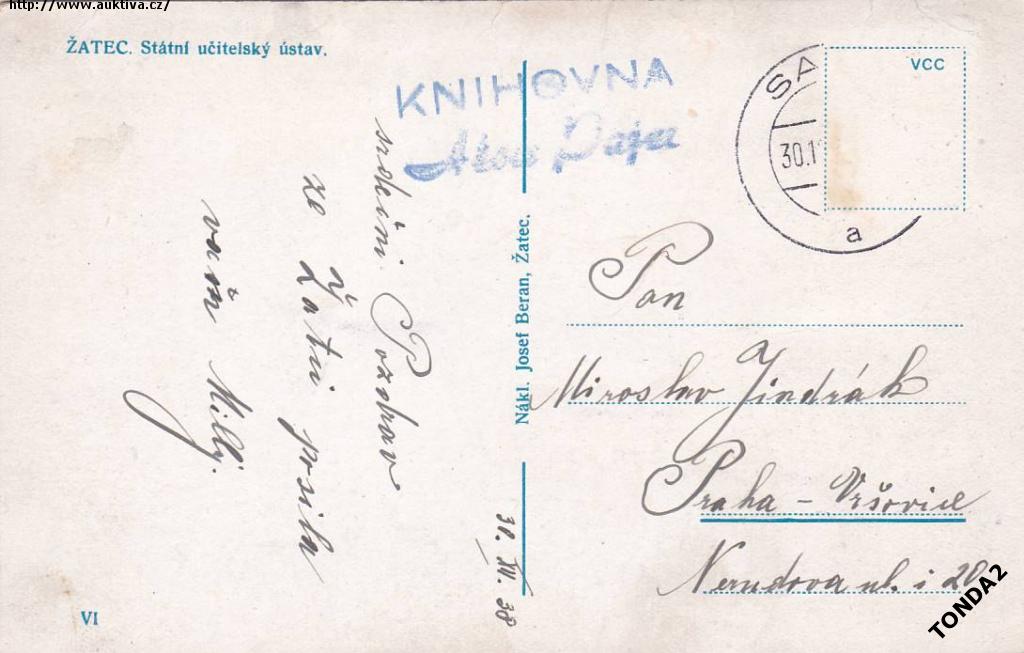 http://www.auktiva.cz/
ŽATEC. Státní učitelský ústav.
KNIHOVNA
VCC
SA
30.1
a
Nákl. Josef Beran, Žatec.
srdečni Pozdrav
ze Žatce posila
vaše Milly.
31. XII. 38
Pan
Miroslav Jindrák
Praha - Vršovice
Nerudova ul. č 20
VI
TONDA2